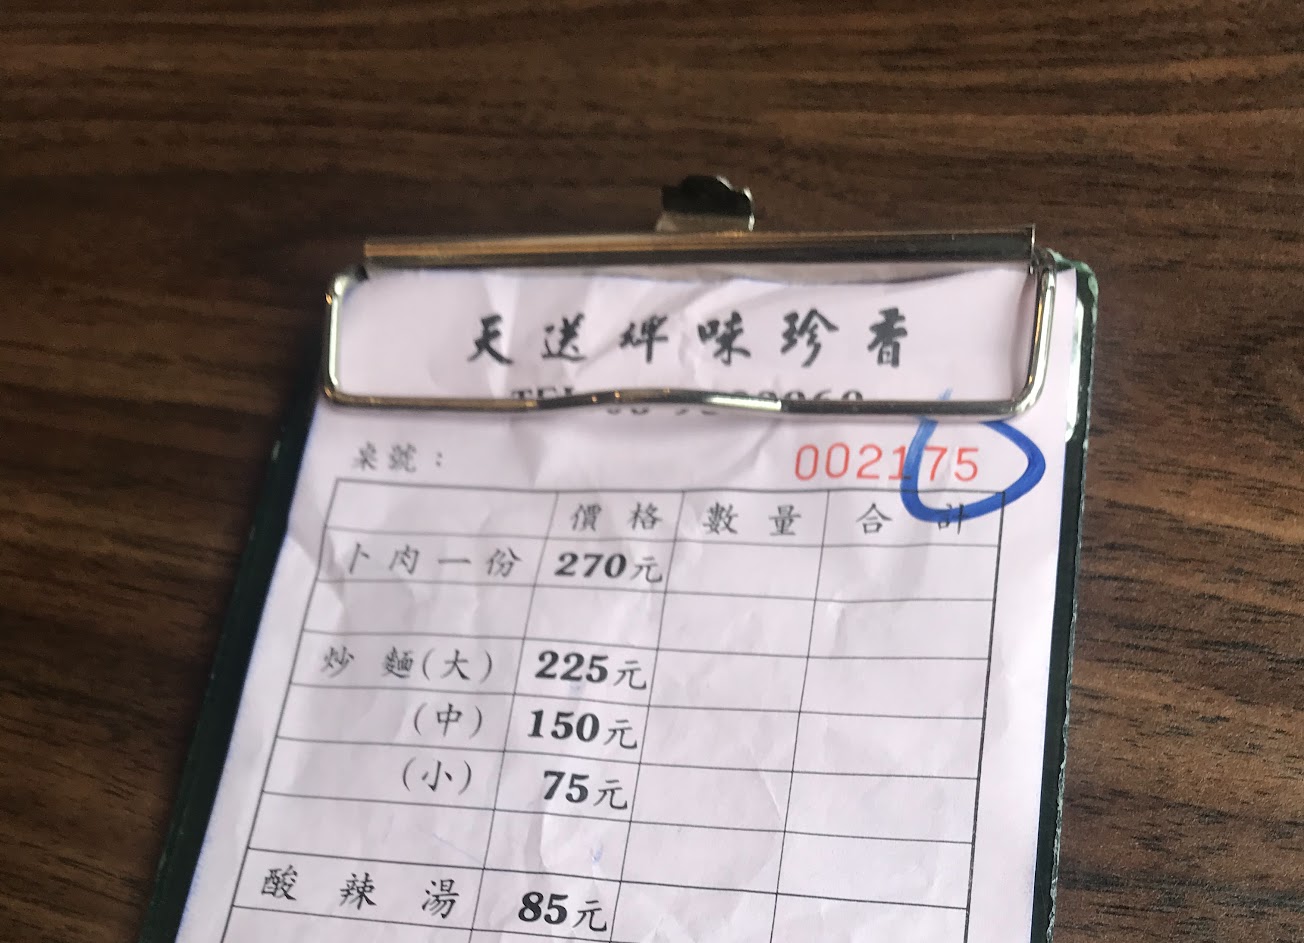 天送埤味珍香
桌號：
002175
價格 數量 合計
卜肉一份 270元
炒麵(大) 225元
(中) 150元
(小) 75元
酸辣湯 85元